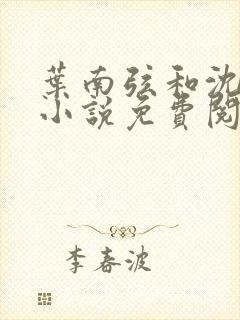 葉南弦和沈
小說免費閱
李春波